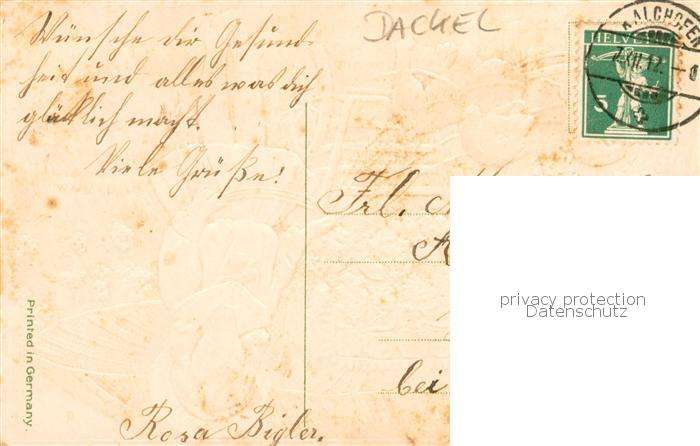 DACKEL
Wünsche dir Gesund-
heit und alles was dich
glücklich macht.
Viele Grüße!
HELVETIA
5
Frl.
bei
privacy protection
Datenschutz
Printed in Germany.
Rosa Bigler.